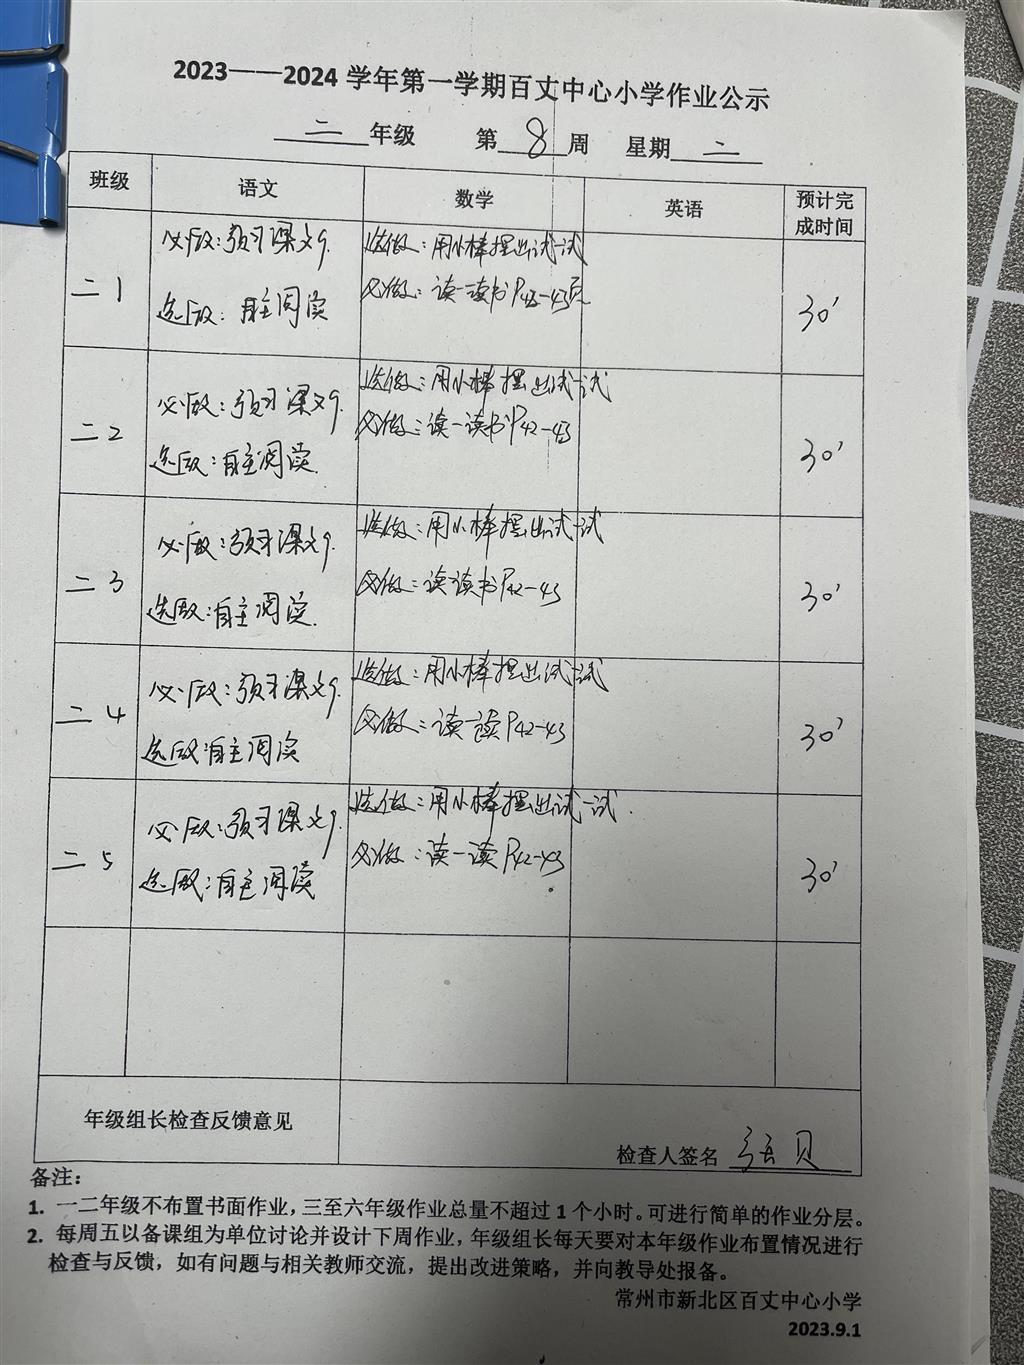 2023——2024 学年第一学期百丈中心小学作业公示
二 年级 第 8 周 星期 二
班级 语文 数学 英语 预计完成时间
二1 必做：预习课文9. 选做：用小棒摆出试一试
选做：自主阅读 必做：读一读书P42-43页 30'
二2 必做：预习课文9. 选做：用小棒摆出试一试
选做：自主阅读. 必做：读一读书P42-43 30'
二3 必做：预习课文9. 选做：用小棒摆出试一试
选做：自主阅读. 必做：读读书P42-43 30'
二4 必做：预习课文9. 选做：用小棒摆出试一试
选做：自主阅读 必做：读一读P42-43 30'
二5 必做：预习课文9. 选做：用小棒摆出试一试.
选做：自主阅读 必做：读一读P42-43 30'
年级组长检查反馈意见
检查人签名
备注：
1. 一二年级不布置书面作业，三至六年级作业总量不超过 1 个小时。可进行简单的作业分层。
2. 每周五以备课组为单位讨论并设计下周作业，年级组长每天要对本年级作业布置情况进行
检查与反馈，如有问题与相关教师交流，提出改进策略，并向教导处报备。
常州市新北区百丈中心小学
2023.9.1